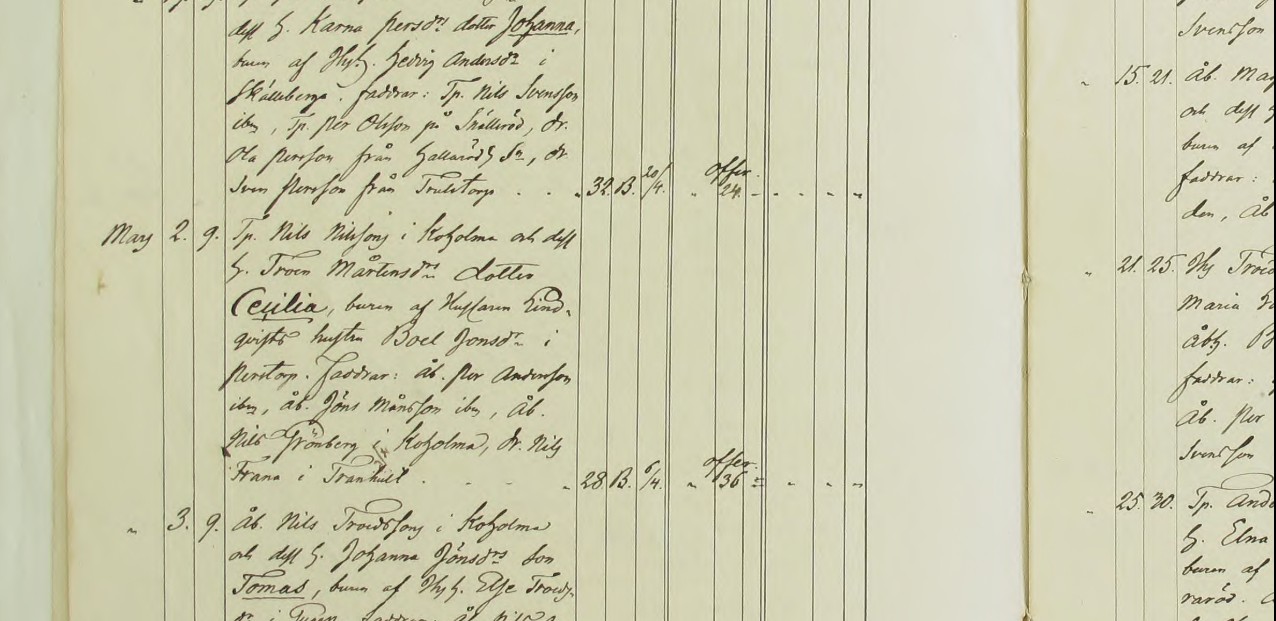 dess h. Karna Persdr dotter Johanna,
buren af Hush. Hedvig Andersdr i
Skälleberga. Faddrar: Tp. Nils Svensson
ibm, Tp. Per Olsson på Snällröd, dr.
Ola Persson från Hallaröds Sn, dr
Sven Persson från Trulstorp . . „ 32. B. 20/4. „ offer. 24. – „ „ „
Mars 2. 9. Tp. Nils Nilssons i Koholma och dess
h. Troen Mårtensdrs dotter
Cecilia, buren af Hussaren Lind-
qvists hustru Boel Jonsdr i
Perstorp. Faddrar: åb. Per Andersson
ibm, åb. Jöns Månsson ibm, Åb.
Nils Grönberg i Koholma, dr. Nils
Frana i Tranhult . - - „ 28 B. 6/4. „ offer. 36 = „ „ „
„ 3. 9. Åb. Nils Troedssons i Koholma
och dess h. Johanna Jönsdrs son
Tomas, buren af Hush. Else Troeds-
dr i
Svensson
„ 15. 21. Åb.
och dess h
buren af
faddrar:
den, Åb
„ 21. 25. Hus Troed
Maria
Åbh. B
faddrar:
Åb. Per
Svensson
„ 25. 30. Tp. Ande
h. Elna
buren af
raröd.